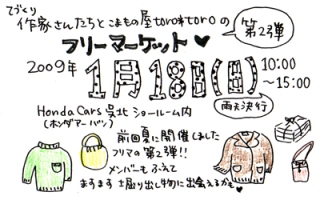 てづくり
作家さんたちとこまもの屋toromoroの 第2弾
フリーマーケット♥
2009年 1月18日(日) 10:00
~15:00
雨天決行
Honda Cars 呉北 ショールーム内
(ホンダ カーズ)
前回夏に開催しました
フリマの第2弾!!
メンバーもふえて
ますます 掘り出し物に出会えるかも♥